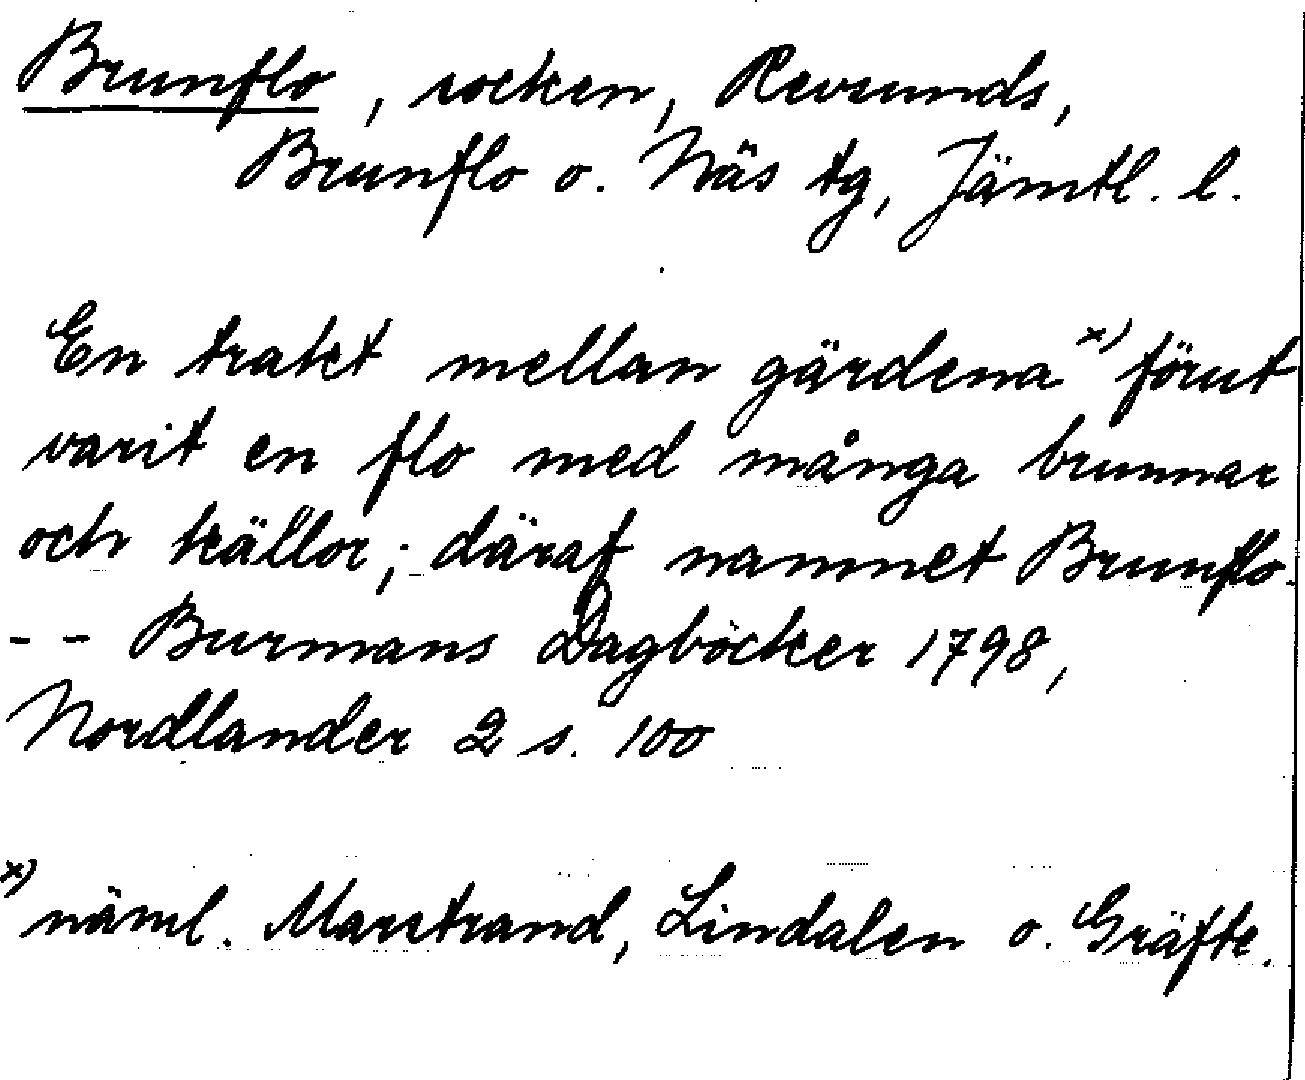 Brunflo, socken, Revsunds,
Brunflo o. Näs tg, Jämtl. l.
En trakt mellan gärdena x) förut
varit en flo med många brunnar
och källor; däraf namnet Brunflo.
-- Burmans Dagböcker 1798,
Nordlander 2 s. 100
x) näml. Marstrand, Lindalen o. Gräfte.